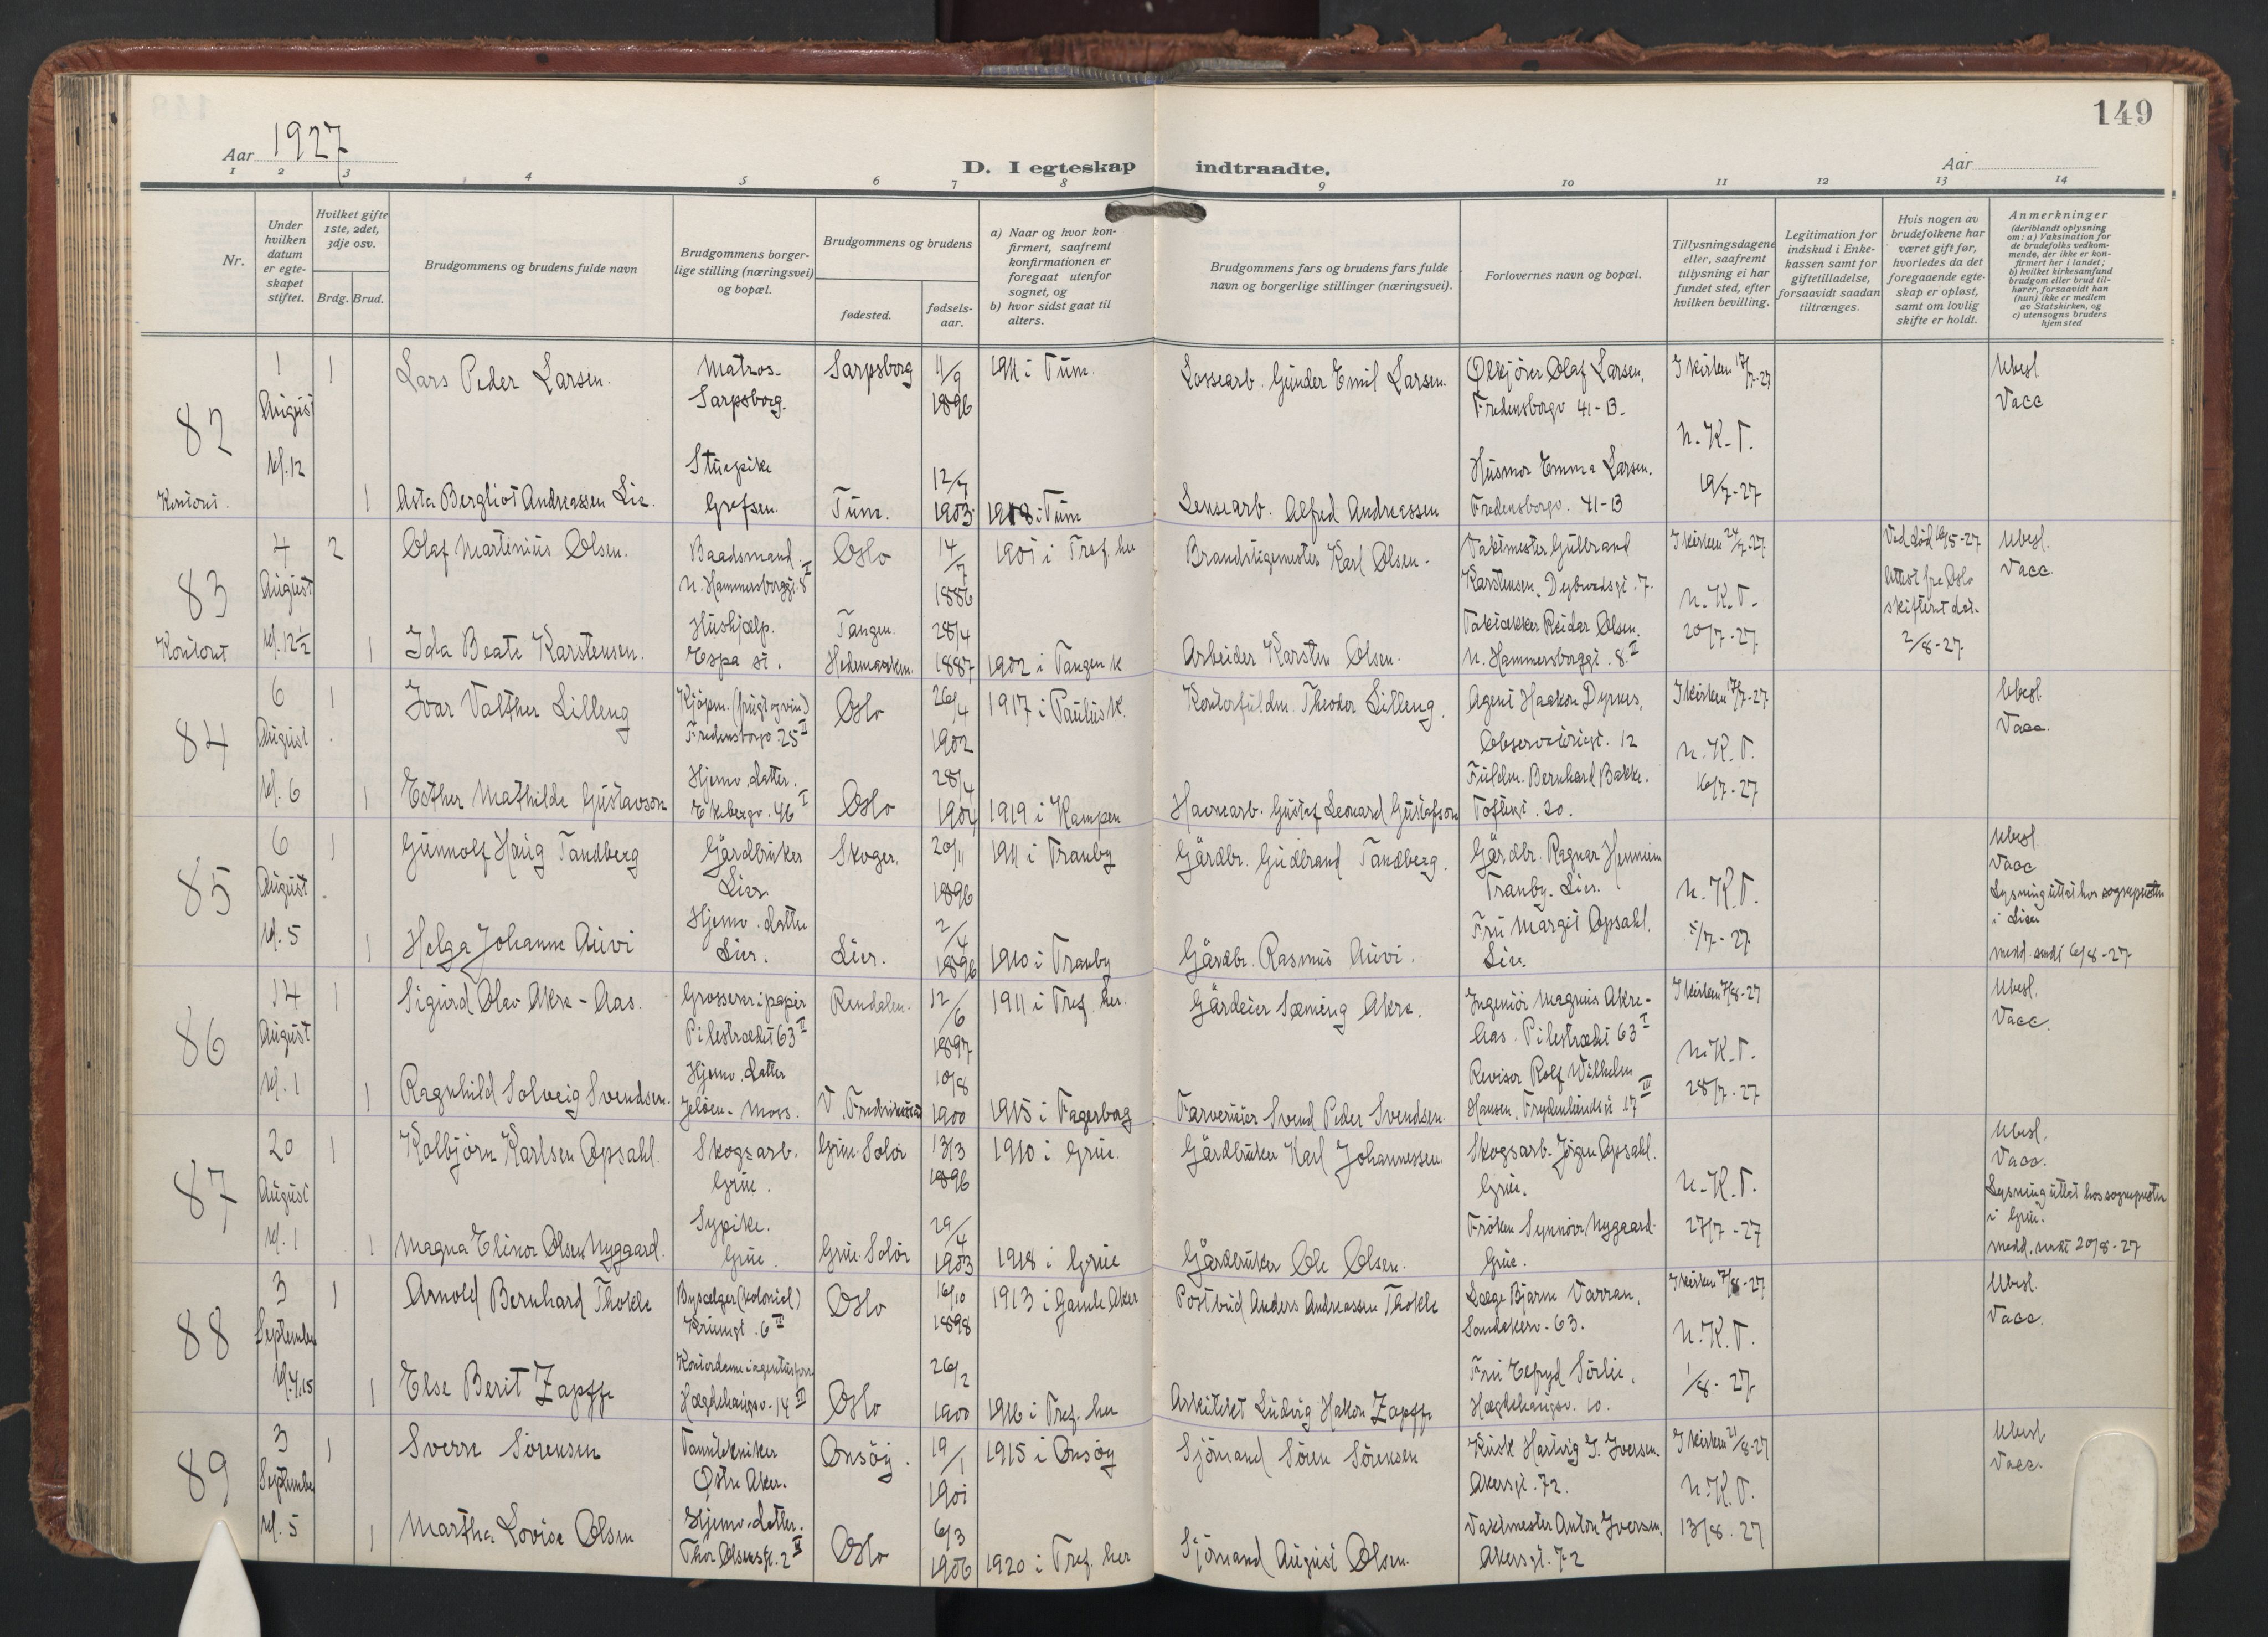 149
Aar 1927
D. I egteskap indtraadte.
Aar
1 2 3 4 5 6 7 8 9 10 11 12 13 14
Nr.
Under hvilken datum er egteskapet stiftet.
Hvilket gifte 1ste, 2det, 3dje osv.
Brdg. Brud.
Brudgommens og brudens fulde navn
Brudgommens borgerlige stilling (næringsvei) og bopæl.
Brudgommens og brudens
fødested.
fødselsaar.
a) Naar og hvor konfirmert, saafremt konfirmationen er foregaat utenfor sognet, og
b) hvor sidst gaat til alters.
Brudgommens fars og brudens fars fulde navn og borgerlige stillinger (næringsvei).
Forlovernes navn og bopæl.
Tillysningsdagene eller, saafremt tillysning ei har fundet sted, efter hvilken bevilling.
Legitimation for indskud i Enkekassen samt for giftetilladelse, forsaavidt saadan tiltrænges.
Hvis nogen av brudefolkene har været gift før, hvorledes da det foregaaende egteskap er opløst, samt om lovlig skifte er holdt.
Anmerkninger (deriblandt oplysning om: a) Vaksination for de brudefolks vedkommende, der ikke er konfirmert her i landet; b) hvilket kirkesamfund brudgom eller brud tilhører, forsaavidt han (hun) ikke er medlem av Statskirken, og c) utensogns bruders hjemsted
82
1 August kl. 12
Kontoret.
1 Lars Peder Larsen. Matros. Sarpsborg. Sarpsborg 11/9 1896 1911 i Tune. Lossearb. Gunder Emil Larsen. Ølkjører Olaf Larsen, Fredensborgv 41-B. I kirken 17/7-27 Ubesl Vacc
N.K.T. 19/7-27
1 Asta Bergliot Andreassen Lie. Stuepike Grefsen. Tune. 12/7 1903 1918 i Tune Lensearb. Alfred Andreassen Husmor Emma Larsen. Fredensborgv. 41-B
83
4 August kl. 12½
Kontoret
2 Olaf Martinius Olsen. Baadsmand. N. Hammersborggt. 8 I Oslo 14/7 1886 1901 i Tref. her Brandstigemester Karl Olsen. Vaktmester Gulbrand Karstensen, Dybwadsgt. 7. I kirken 24/7-27. Ved død 16/5-27 Attest fra Oslo skifteret dat. 2/8-27 Ubesl. Vacc.
N.K.T. 20/7-27
1 Ida Beate Karstensen. Hushjælp. Espa st. Tangen. Hedemarken. 28/4 1887 1902 i Tangen k Arbeider Karsten Olsen. Taktækker Reidar Olsen. N. Hammersborggt. 8. II
84
6 August kl. 6
1 Ivar Valther Lilleng Kjøpm. (frugt og vin) Fredensborgv. 25 II Oslo 26/4 1902 1917 i Paulus k. Kontorfuldm. Theodor Lilleng. Agent Haakon Dyrnes, Observatoriegt. 12 I kirken 17/7-27 Ubesl. Vacc.
N.K.T. 16/7-27
1 Esther Mathilde Gustavson Hjemv. datter. Ekebergv. 46 I Oslo 28/4 1904 1919 i Kampen Havnearb. Gustaf Leonard Gustafson Fuldm. Bernhard Bakke. Toftesgt. 20.
85
6 August kl. 5
1 Gunnolf Haug Tandberg Gårdbruker Lier Skoger. 20/11 1896 1911 i Tranby Gårdbr. Gudbrand Tandberg. Gårdbr. Ragnar Hennum Tranby. Lier. N.K.T. 5/7-27 Ubesl. Vacc Lysning uttat hos sognepresten i Lier medd. sendt 6/8-27
1 Helga Johanne Auvi Hjemv. datter Lier. Lier. 2/4 1896 1910 i Tranby Gårdbr. Rasmus Auvi. Fru Margit Opsahl. Lier.
86
14 August kl. 1
1 Sigurd Olav Akre-Aas. Grosserer i papir Pilestrædet 63 II Rendalen. 12/6 1897 1911 i Tref. her. Gårdeier Sæming Akre. Ingeniør Magnus Akre-Aas. Pilestrædet 63 I I kirken 7/8-27 Ubesl. Vacc.
N.K.T. 28/7-27
1 Ragnhild Solveig Svendsen. Hjemv. datter Jeløen. Moss. V. Fredrikstad 10/8 1900 1915 i Fagerborg Farvermester Svend Peder Svendsen. Revisor Rolf Wilhelm Hansen, Frydenlundsgt 17 III
87
20 August kl. 1
1 Kolbjørn Karlsen Opsahl. Skogsarb. Grue. Grue. Solør 13/3 1896 1910 i Grue. Gårdbruker Karl Johannessen. Skogsarb. Jørgen Opsahl. Grue. N.K.T. 27/7-27 Ubesl. Vacc. Lysning uttat hos sognepresten i Grue. medd. sendt 20/8-27
1 Magna Elinor Olsen Nygaard. Sypike. Grue. Grue. Solør 29/4 1903 1918 i Grue Gårdbruker Ole Olsen. Frøken Synnøve Nygaard. Grue.
88
3 September kl. 4.15
1 Arnold Bernhard Thokle Bysælger (kolonial) 6 II Oslo 16/10 1898 1913 i Gamle Aker Postbud Anders Andreassen Thokle Læge Bjarne Varran, Sandakerv. 63. I kirken 7/8-27 Ubesl. Vacc.
N.K.T. 1/8-27.
1 Else Berit Zapffe Kontordame i agenturforr. Hægdehaugsv. 14 III Oslo 26/2 1900 1916 i Tref. her Arkitekt Ludvig Hakon Zapffe Fru Sørlie, Hægdehaugsv. 10.
89
3 September kl. 5
1 Sverre Sørensen Tanntekniker Østre Aker. Onsøy. 19/1 1901 1915 i Onsøy Sjømand Søren Sørensen Kusk Hartvig J. Iversen. Akersgt. 72. I kirken 21/8-27 Ubesl Vacc.
N.K.T. 13/8.27
1 Martha Lovise Olsen Hjemv. datter. Thor Olsensgt. 2 II Oslo 6/3 1906 1920 i Tref. her Sjømand August Olsen. Vaktmester Anton Iversen, Akersgt. 72